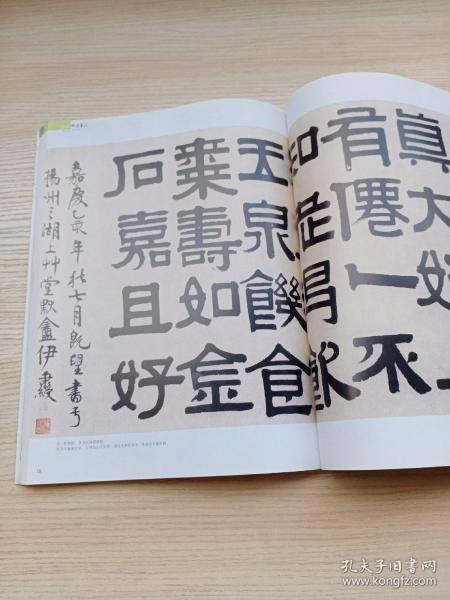 真大好上
有僊不
知飲
玉泉饑食
棗壽如金
石嘉且好
嘉慶乙亥年秋七月既望書于
揚州之湖上艸堂默盦伊秉綬
孔夫子旧书网
www.kongfz.com